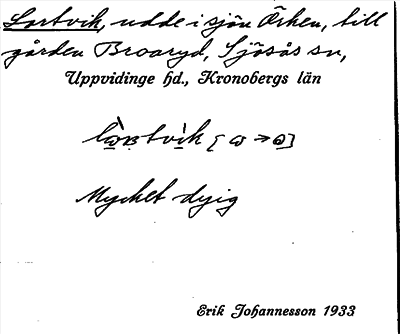 Lortvik, udde i sjön Örken, till
gården Broaryd, Sjösås sn,
Uppvidinge hd., Kronobergs län
Mycket dyig
Erik Johannesson 1933